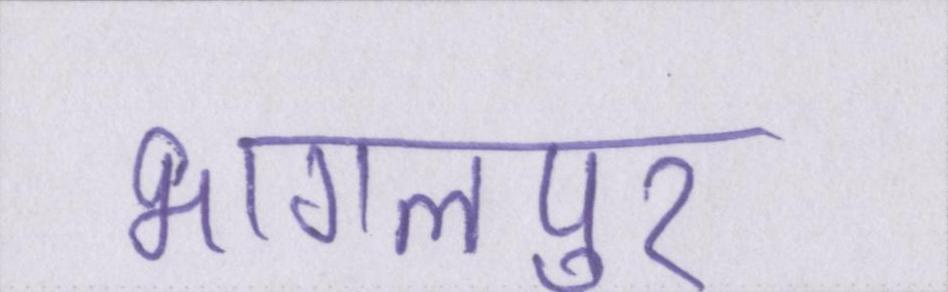 भागलपुर